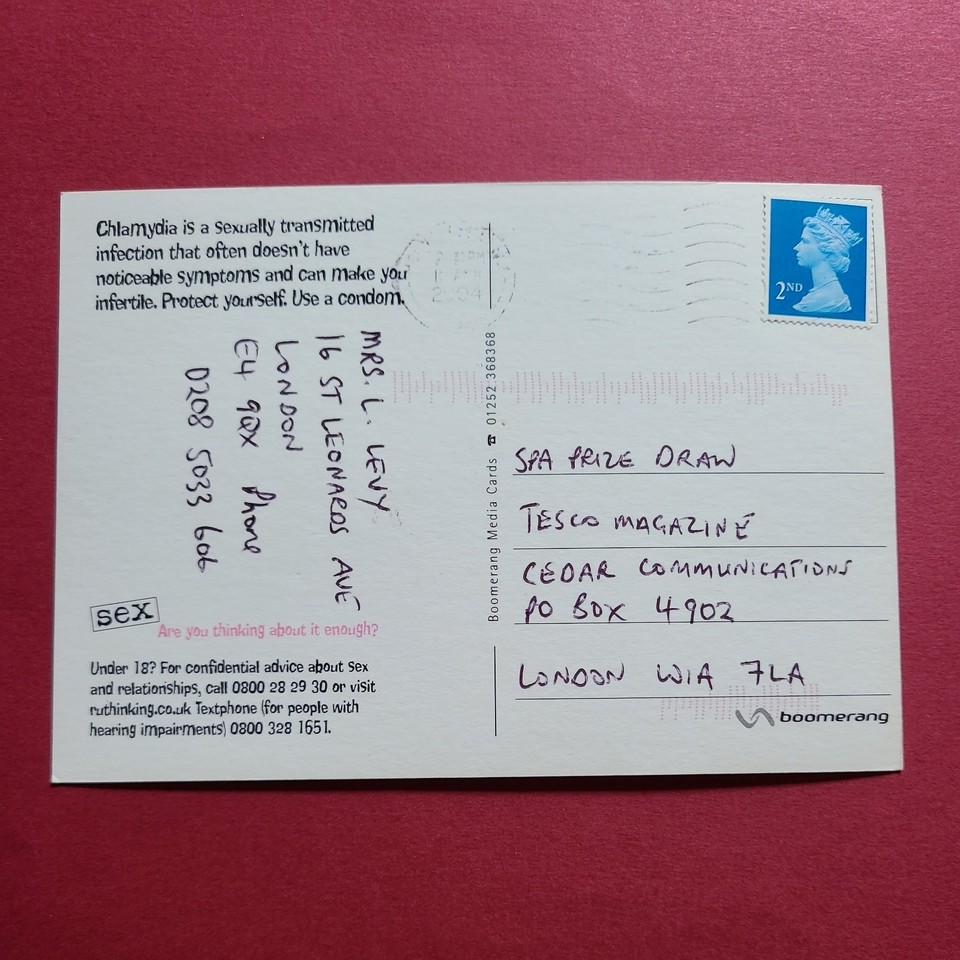 Chlamydia is a sexually transmitted
infection that often doesn't have
noticeable symptoms and can make you
infertile. Protect yourself. Use a condom.
MRS. L. LEVY
16 ST LEONARDS AVE
LONDON
E4 9QX Phone
0208 5033 606
sex
Are you thinking about it enough?
Under 18? For confidential advice about sex
and relationships, call 0800 28 29 30 or visit
ruthinking.co.uk Textphone (for people with
hearing impairments) 0800 328 1651.
Boomerang Media Cards ☎ 01252 368368
2004
2ND
SPA PRIZE DRAW
TESCO MAGAZINE
CEDAR COMMUNICATIONS
PO BOX 4902
LONDON W1A 7LA
boomerang